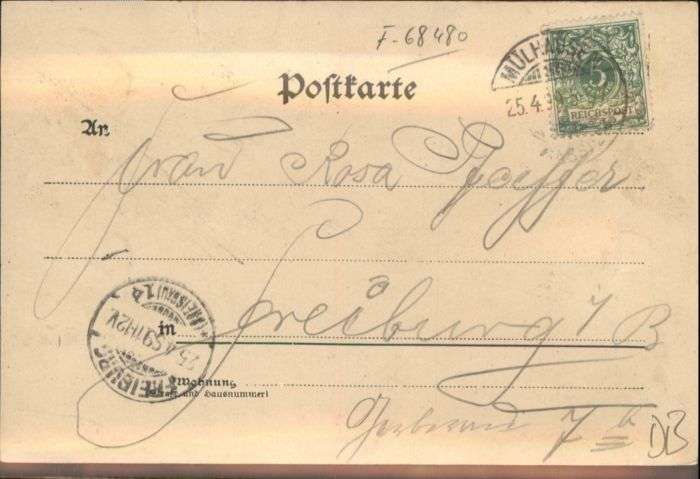 F-68480
MÜLHAUSE
25.4.9
5
REICHSPOST
Postkarte
An
Frau Rosa Pfeiffer
in Freiburg i/B
FREIBURG
(BREISGAU) 1
Wohnung
und Hausnummer)
7
DB